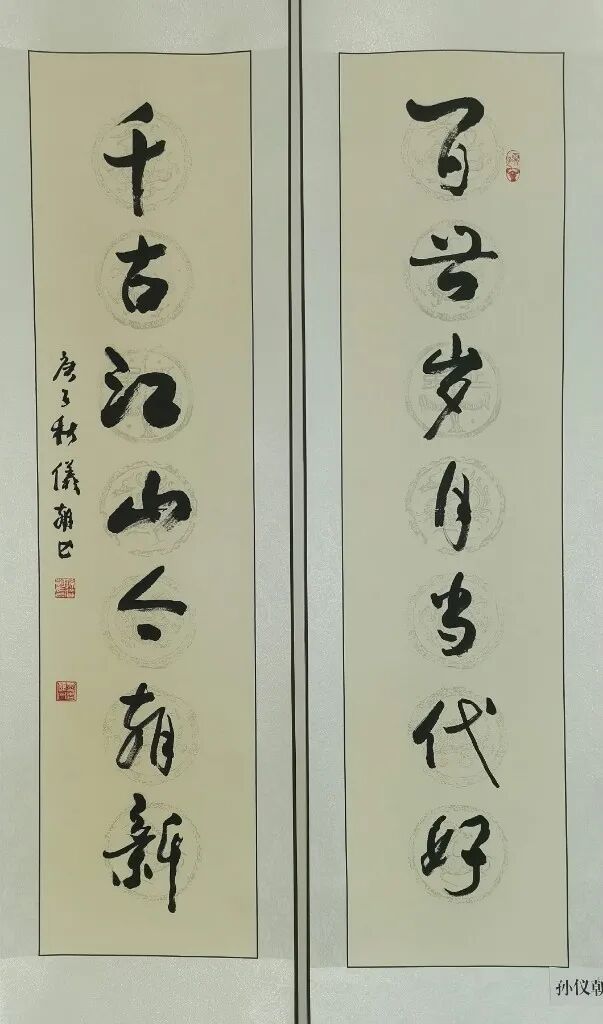 百世岁月当代好
千古江山今朝新
庚子秋儀朝书
孙仪朝